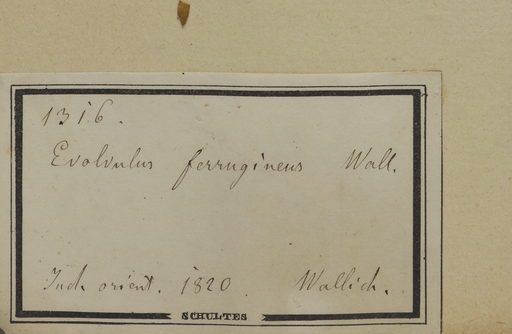 1316.
Evolvulus ferrugineus Wall.
Ind. orient. 1820. Wallich.
SCHULTES